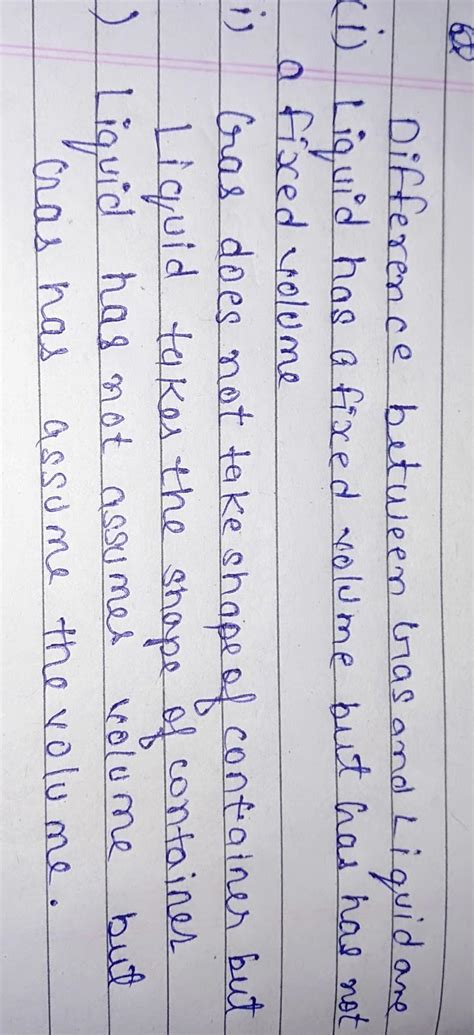 Difference between Gas and Liquid are
(i) Liquid has a fixed volume but Gas has not
a fixed volume
i) Gas does not take shape of container but
Liquid takes the shape of container
) Liquid has not assumes volume but
Gas has assume the volume.